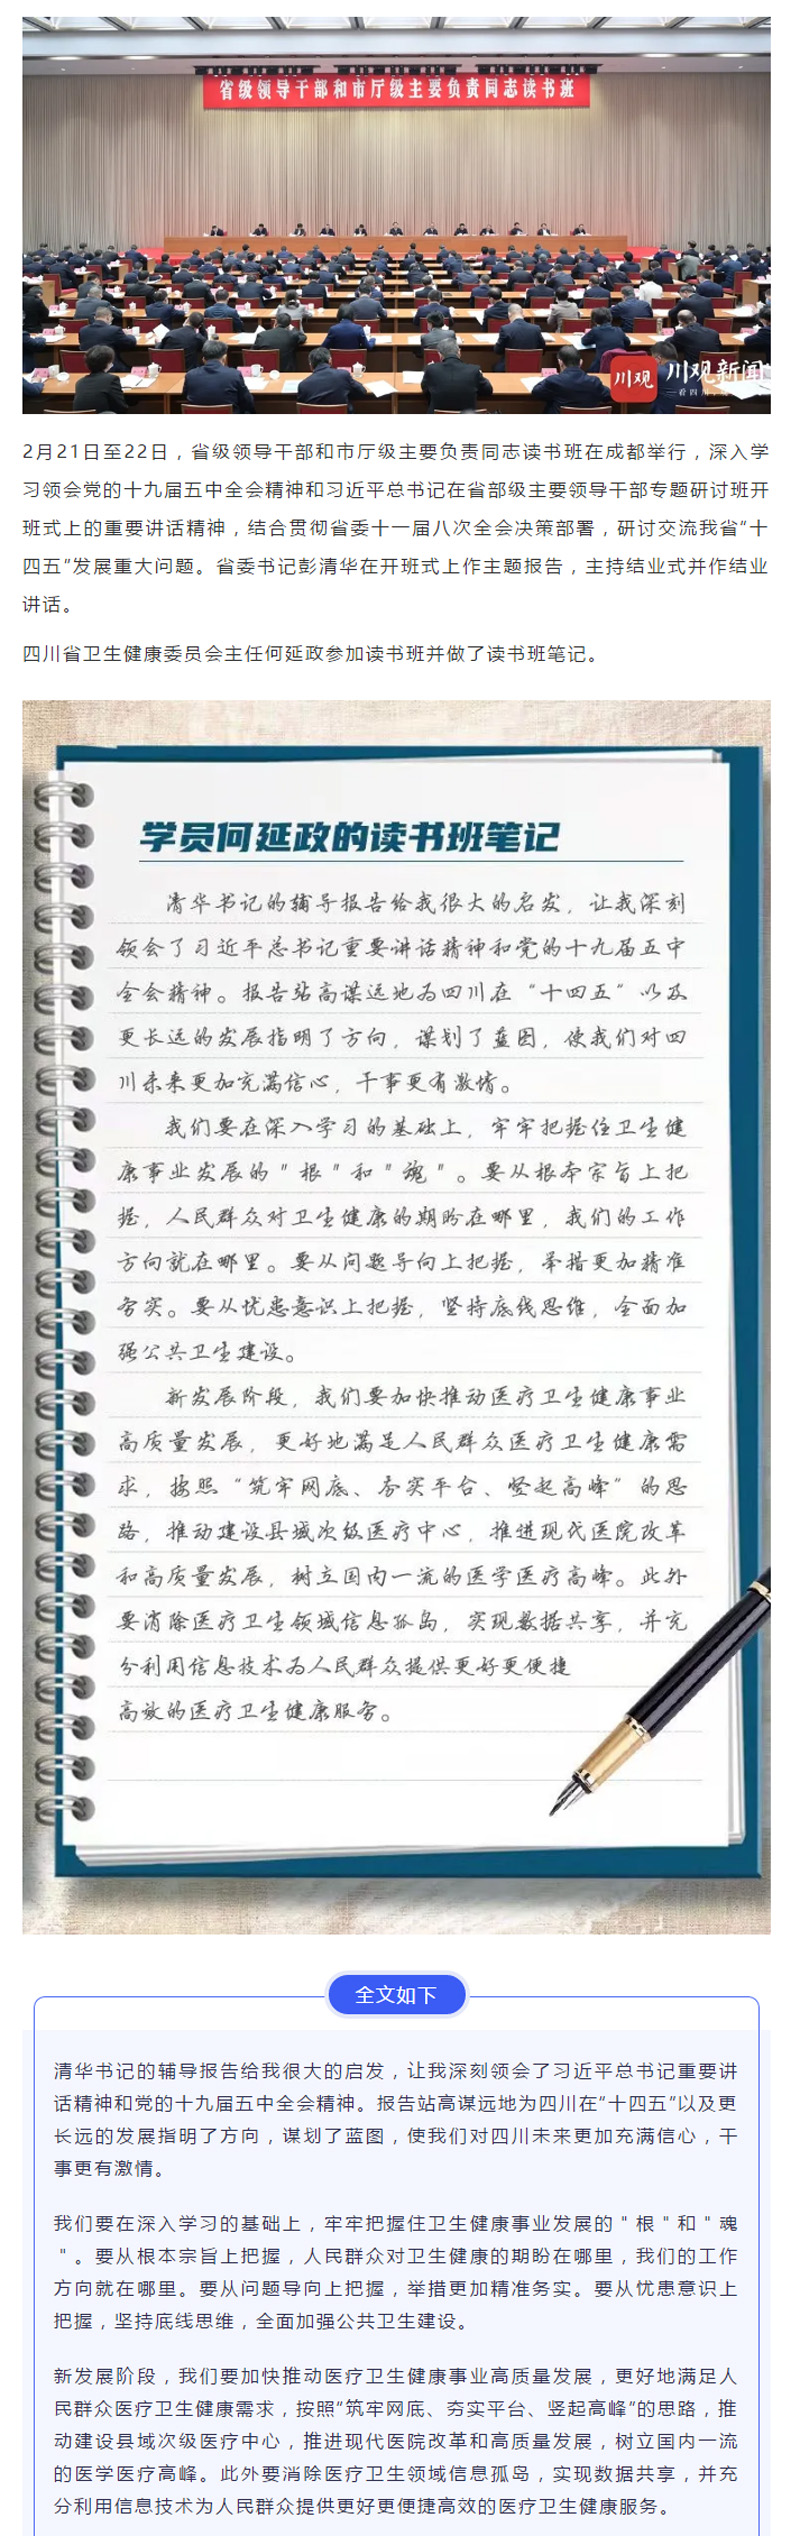 省级领导干部和市厅级主要负责同志读书班
川观
川观新闻
2月21日至22日，省级领导干部和市厅级主要负责同志读书班在成都举行，深入学
习领会党的十九届五中全会精神和习近平总书记在省部级主要领导干部专题研讨班开
班式上的重要讲话精神，结合贯彻省委十一届八次全会决策部署，研讨交流我省“十
四五”发展重大问题。省委书记彭清华在开班式上作主题报告，主持结业式并作结业
讲话。
四川省卫生健康委员会主任何延政参加读书班并做了读书班笔记。
学员何延政的读书班笔记
清华书记的辅导报告给我很大的启发，让我深刻
领会了习近平总书记重要讲话精神和党的十九届五中
全会精神。报告站高谋远地为四川在“十四五”以及
更长远的发展指明了方向，谋划了蓝图，使我们对四
川未来更加充满信心，干事更有激情。
我们要在深入学习的基础上，牢牢把握住卫生健
康事业发展的＂根＂和＂魂＂。要从根本宗旨上把
握，人民群众对卫生健康的期盼在哪里，我们的工作
方向就在哪里。要从问题导向上把握，举措更加精准
务实。要从忧患意识上把握，坚持底线思维，全面加
强公共卫生建设。
新发展阶段，我们要加快推动医疗卫生健康事业
高质量发展，更好地满足人民群众医疗卫生健康需
求，按照“筑牢网底、夯实平台、竖起高峰”的思
路，推动建设县域次级医疗中心，推进现代医院改革
和高质量发展，树立国内一流的医学医疗高峰。此外
要消除医疗卫生领域信息孤岛，实现数据共享，并充
分利用信息技术为人民群众提供更好更便捷
高效的医疗卫生健康服务。
全文如下
清华书记的辅导报告给我很大的启发，让我深刻领会了习近平总书记重要讲
话精神和党的十九届五中全会精神。报告站高谋远地为四川在“十四五”以及更
长远的发展指明了方向，谋划了蓝图，使我们对四川未来更加充满信心，干
事更有激情。
我们要在深入学习的基础上，牢牢把握住卫生健康事业发展的＂根＂和＂魂
＂。要从根本宗旨上把握，人民群众对卫生健康的期盼在哪里，我们的工作
方向就在哪里。要从问题导向上把握，举措更加精准务实。要从忧患意识上
把握，坚持底线思维，全面加强公共卫生建设。
新发展阶段，我们要加快推动医疗卫生健康事业高质量发展，更好地满足人
民群众医疗卫生健康需求，按照“筑牢网底、夯实平台、竖起高峰”的思路，推
动建设县域次级医疗中心，推进现代医院改革和高质量发展，树立国内一流
的医学医疗高峰。此外要消除医疗卫生领域信息孤岛，实现数据共享，并充
分利用信息技术为人民群众提供更好更便捷高效的医疗卫生健康服务。